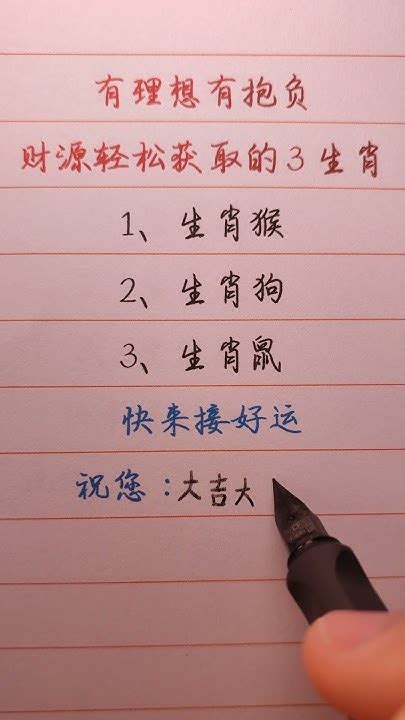 有理想有抱负
财源轻松获取的3生肖
1、生肖猴
2、生肖狗
3、生肖鼠
快来接好运
祝您：大吉大